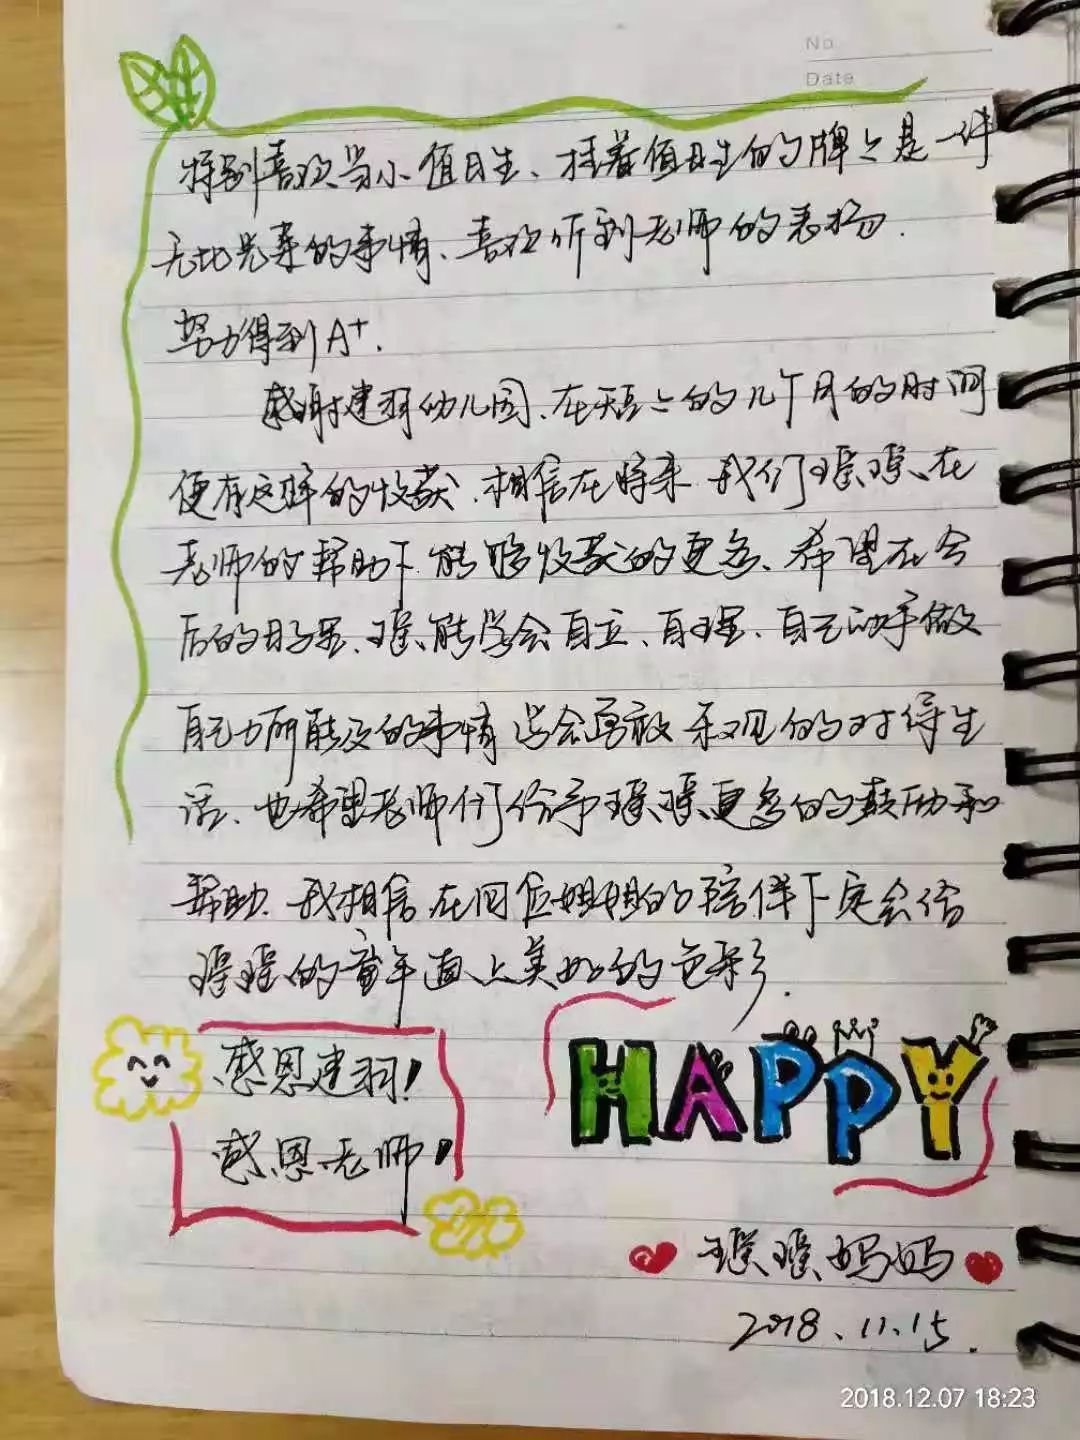 No
Date
特别喜欢当小值日生、挂着值日生的牌牌是一件
无比光荣的事情、喜欢听到老师的表扬.
努力得到A+.
感谢建羽幼儿园、在短短的几个月的时间
便有这样的收获.相信在将来 我们瑶瑶在
老师的帮助下.能够收获的更多、希望在今
后的日子里、瑶瑶能学会自立、自理、自己动手做
自己力所能及的事情 学会勇敢 乐观的对待生
活、也希望老师们给予瑶瑶更多的鼓励和
帮助. 我相信 在四位姐姐的陪伴下定会给
瑶瑶的童年画上美好的色彩.
感恩建羽!
感恩老师!
HAPPY
瑶瑶妈妈
2018.11.15.
2018.12.07 18:23